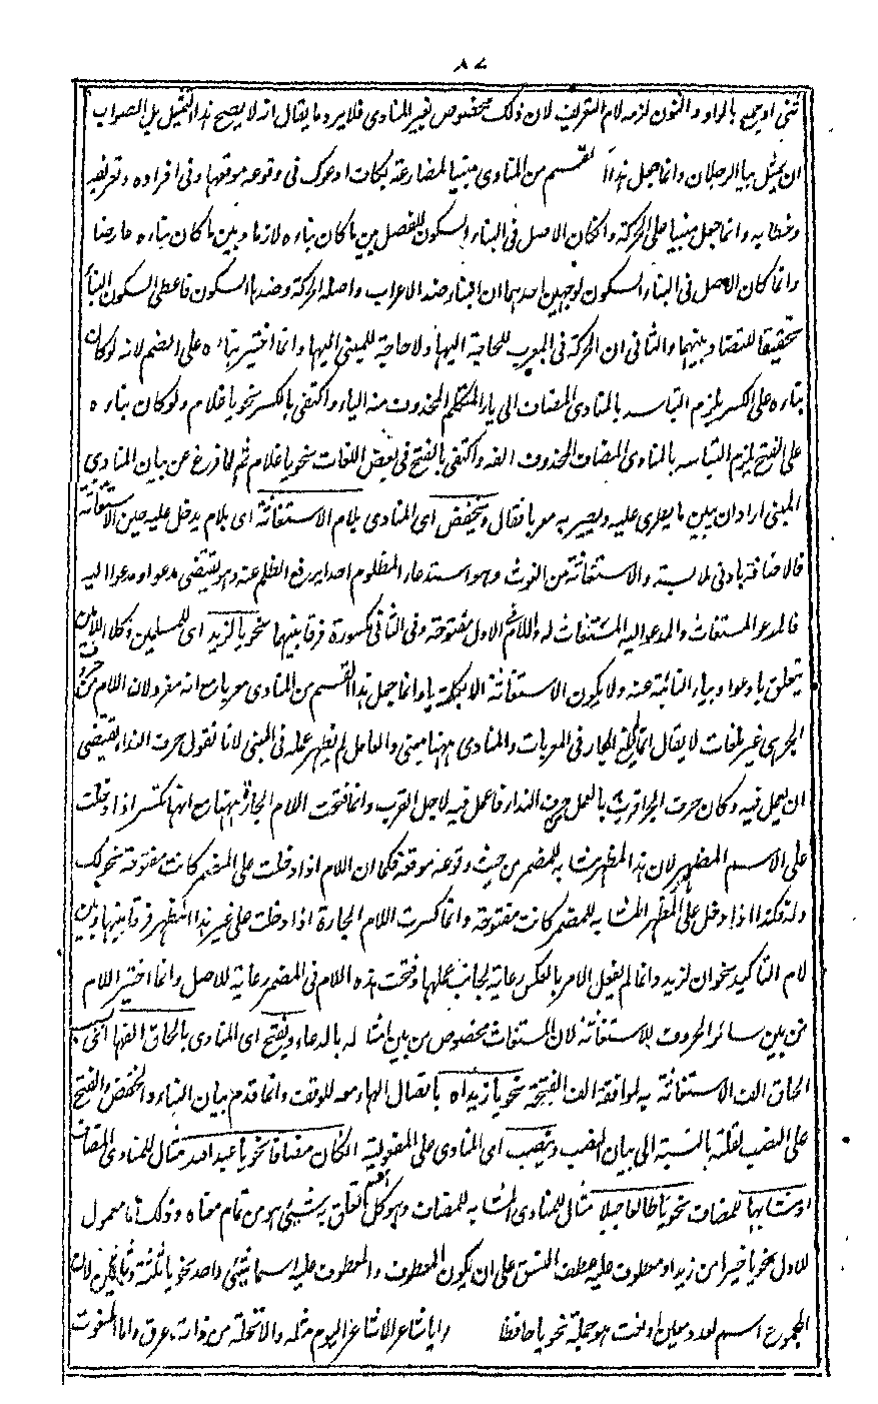 ٨٧
ثنى او جمع بالواو والنون لزمه لام التعريف لان ذلك مخصوص بغير المنادى فلا يرد ما يقال انه لا يصح هذا التمثيل بل الصواب
ان يمثل بيا الرجلان وانما جعل هذا القسم من المنادى مبنيا لمضارعة لكاف ادعوك فى وقوعه موقعها وفى افراده وتعريفه
وخطابه وانما جعل مبنيا على الحركة وان كان الاصل فى البناء السكون للفصل بين ما كان بناءه لازما وبين ما كان بناءه عارضا
وانما كان الاصل فى البناء السكون لوجهين احدهما ان البناء ضد الاعراب واصله الحركة وضدها السكون فاعطى السكون البناء
تحقيقا للتضاد بينهما والثانى ان الحركة فى المعرب للحاجة اليها ولا حاجة للمبنى اليها وانما اختير بناءه على الضم لانه لو كان
بناءه على الكسر يلزم التباسه بالمنادى المضاف الى ياء المتكلم المحذوف منه الياء واكتفى بالكسر نحو يا غلام ولو كان بناءه
على الفتح يلزم التباسه بالمنادى المضاف المحذوف الفه واكتفى بالفتح فى بعض اللغات نحو يا غلام ثم لما فرغ عن بيان المنادى
المبنى اراد ان يبين ما يطرى عليه ويصير به معربا فقال ويخفض اى المنادى بلام الاستغاثة اى بلام يدخل عليه حين الاستغاثة
فالاضافة بادنى ملابسة والاستغاثة من الغوث وهو استدعاء المظلوم احدا يرفع الظلم عنه وهو يقتضى مدعوا ومدعوا اليه
فالمدعو المستغاث والمدعو اليه المستغاث له واللام فى الاول مفتوحة وفى الثانى مكسورة فرقا بينهما نحو يا لزيد اى للمسلمين وكلا اللامين
يتعلق بادعوا وبياء النائبة عنه ولا يكون الاستغاثة الا بكلمة يا وانما جعل هذا القسم من المنادى معربا مع انه مفرد لان اللام من حروف
الجر هى غير ملغاة لا يقال انما الجار فى المعربات والمنادى ههنا مبنى والعامل لم يظهر عمله فى المبنى لانا نقول حرف النداء يقتضى
ان يعمل فيه وكان حرف الجر اقرب بالعمل من حرف النداء فاعمل فيه لاجل القرب وانما فتحت اللام الجارة ههنا مع انها تكسر اذا دخلت
على الاسم المظهر لان هذا المظهر مشابه للمضمر من حيث وقوعه موقعه فكما ان اللام اذا دخلت على المضمر كانت مفتوحة نحو لك
وله فكذا اذا دخل على المظهر المشابه للمضمر كانت مفتوحة وانما كسرت اللام الجارة اذا دخلت على غير هذا المظهر فرقا بينها وبين
لام التاكيد نحو ان لزيد وانما لم يفعل الامر بالعكس رعاية لجانب عملها وفتحت هذه اللام فى المضمر رعاية للاصل وانما اختير اللام
من بين سائر الحروف للاستغاثة لان المستغاث مخصوص من بين امثاله بالدعاء ويفتح اى المنادى بالحاق الفها اى بسبب
الحاق الف الاستغاثة به لموافقة الف الفتحة نحو يا زيداه باتصال الهاء معه للوقف وانما قدم بيان البناء والخفض والفتح
على النصب لقلته بالنسبة الى بيان النصب وينصب اى المنادى على المفعولية ان كان مضافا نحو يا عبد الله مثال للمنادى المضاف
او مشابها للمضاف نحو يا طالعا جبلا مثال للمنادى المشابه للمضاف وهو كل اسم تعلق به شىء هو من تمام معناه وذلك اما معمول
للاول نحو يا خيرا من زيد او معطوف عليه عطف النسق على ان يكون المعطوف والمعطوف عليه اسما لشىء واحد نحو يا ثلثة وثلثين لان
المجموع اسم لعدد معين او نعت هو جملة نحو يا حافظا